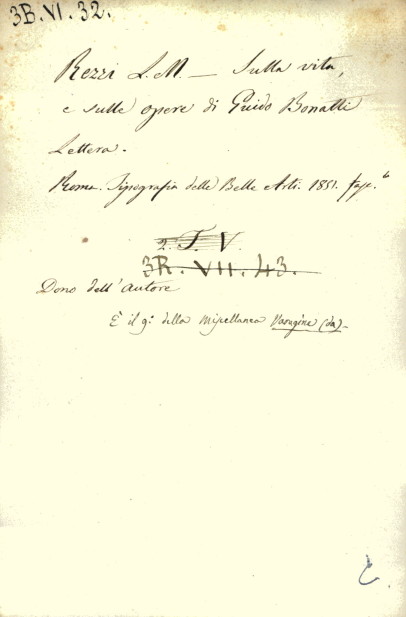 3B.VI.32.
Rezzi L. M. — Sulla vita,
e sulle opere di Guido Bonatti
Lettera.
Roma. Tipografia delle Belle Arti. 1851. fasc.º
2. T. V.
3R. VII. 43.
Dono dell'autore
È il 9º della Miscellanea Varagine (da)